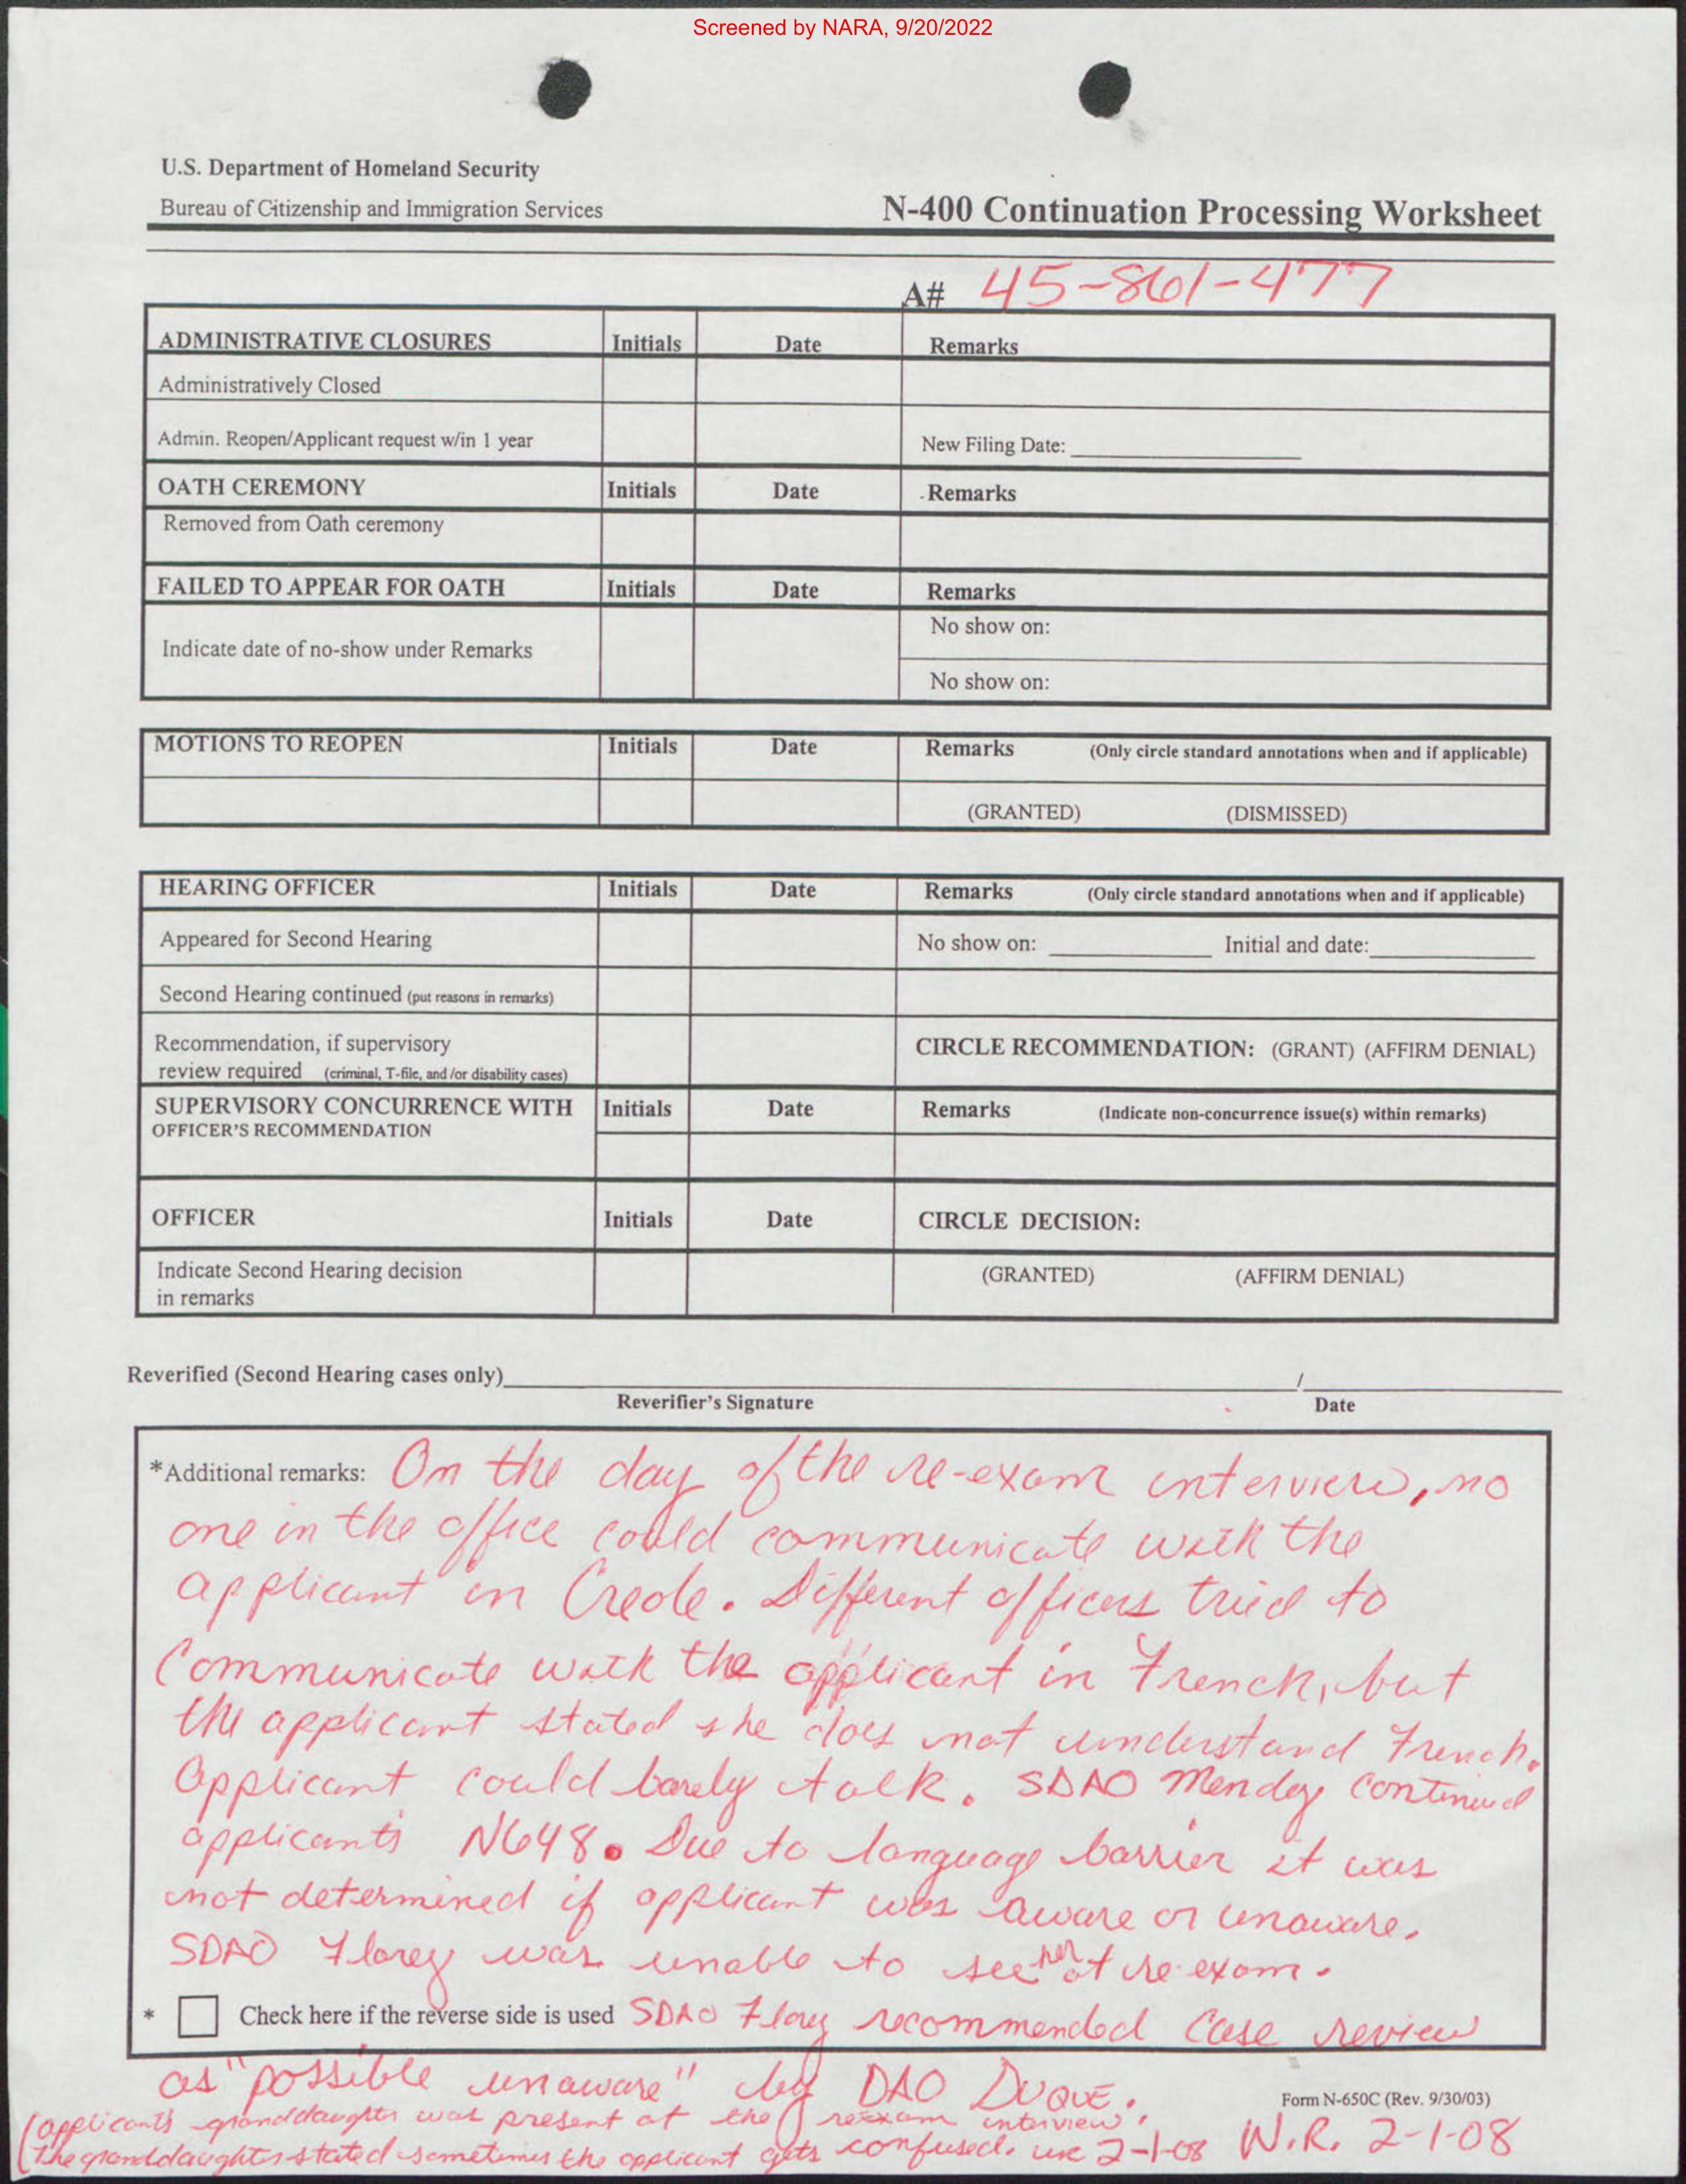 Screened by NARA, 9/20/2022
U.S. Department of Homeland Security
Bureau of Citizenship and Immigration Services
N-400 Continuation Processing Worksheet
A# 45-861-477
ADMINISTRATIVE CLOSURES Initials Date Remarks
Administratively Closed
Admin. Reopen/Applicant request w/in 1 year New Filing Date:
OATH CEREMONY Initials Date Remarks
Removed from Oath ceremony
FAILED TO APPEAR FOR OATH Initials Date Remarks
No show on:
Indicate date of no-show under Remarks
No show on:
MOTIONS TO REOPEN Initials Date Remarks (Only circle standard annotations when and if applicable)
(GRANTED) (DISMISSED)
HEARING OFFICER Initials Date Remarks (Only circle standard annotations when and if applicable)
Appeared for Second Hearing No show on: Initial and date:
Second Hearing continued (put reasons in remarks)
Recommendation, if supervisory
review required (criminal, T-file, and /or disability cases)
CIRCLE RECOMMENDATION: (GRANT) (AFFIRM DENIAL)
SUPERVISORY CONCURRENCE WITH Initials Date Remarks (Indicate non-concurrence issue(s) within remarks)
OFFICER'S RECOMMENDATION
OFFICER Initials Date CIRCLE DECISION:
Indicate Second Hearing decision
in remarks
(GRANTED) (AFFIRM DENIAL)
Reverified (Second Hearing cases only) /
Reverifier's Signature Date
*Additional remarks: On the day of the re-exam interview, no
one in the office could communicate with the
applicant in Creole. Different officers tried to
Communicate with the applicant in French, but
the applicant stated she does not understand French.
Applicant could barely talk. SDAO Mendez continued
applicants N648. Due to language barrier it was
not determined if applicant was aware or unaware.
SDAO Florez was unable to see her at re-exam.
* Check here if the reverse side is used SDAO Florez recommended case review
as "possible unaware" by DAO DUQUE.
Form N-650C (Rev. 9/30/03)
(applicant's granddaughter was present at the reexam interview.
The granddaughter stated sometimes the applicant gets confused. 2-1-08 W.R. 2-1-08